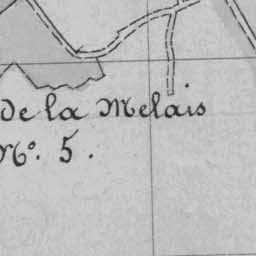 de la Melais
No. 5.